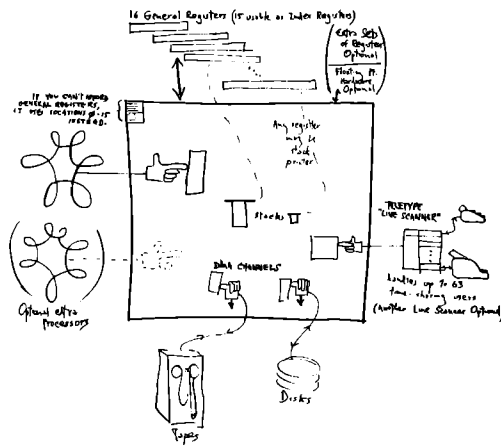 16 General Registers (15 usable as Index Registers)
(Extra Set
of Registers
Optional
Floating Pt.
Hardware
Optional)
IF YOU CAN'T AFFORD
GENERAL REGISTERS,
IT USES LOCATIONS 0-15
INSTEAD.
Any register
may be
stack
pointer
Stacks
TELETYPE
"LINE SCANNER"
handles up to 63
time-sharing users
(Another Line Scanner Optional)
DMA CHANNELS
Optional extra
Processors
Tapes
Disks